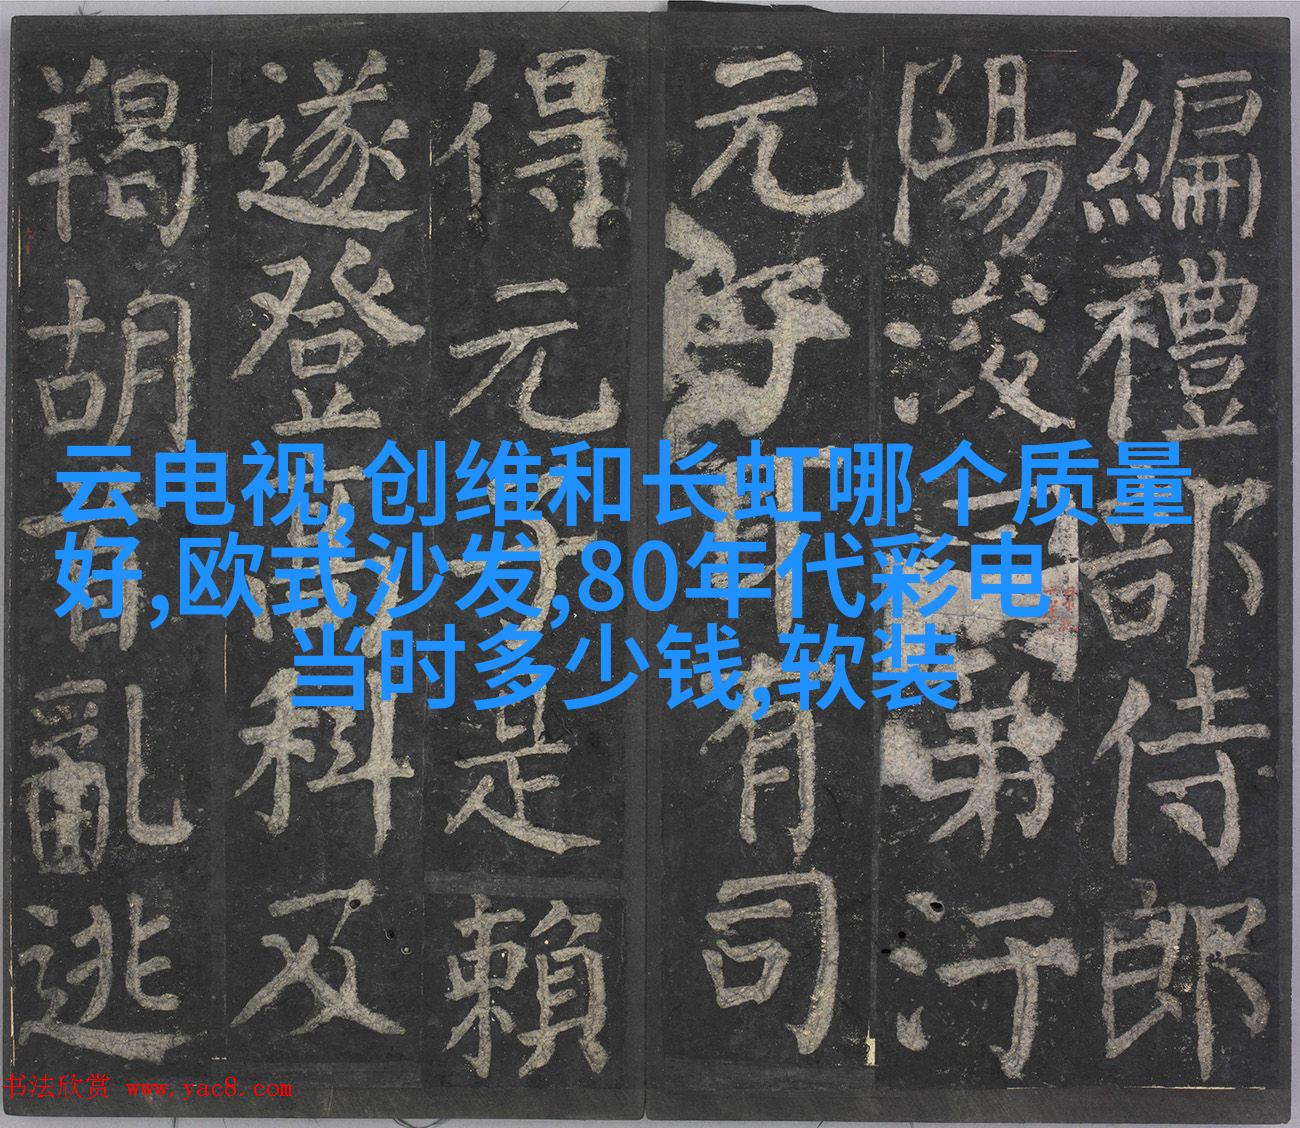 編禮部侍郎
陽浚第汙
元有司
得元子是賴
遂登高科及
羯胡首亂逃
云电视,创维和长虹哪个质量
好,欧式沙发,80年代彩电
当时多少钱,软装
书法欣赏 www.yac8.com